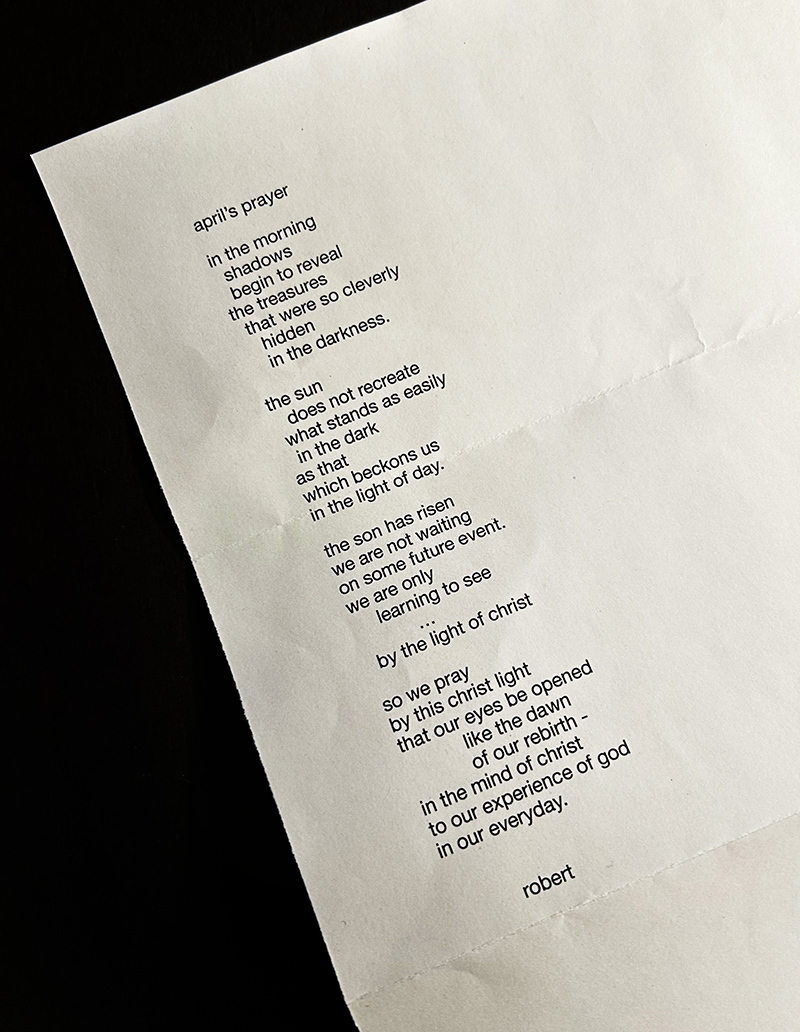 april's prayer
in the morning
shadows
begin to reveal
the treasures
that were so cleverly
hidden
in the darkness.
the sun
does not recreate
what stands as easily
in the dark
as that
which beckons us
in the light of day.
the son has risen
we are not waiting
on some future event.
we are only
learning to see
...
by the light of christ
so we pray
by this christ light
that our eyes be opened
like the dawn
of our rebirth -
in the mind of christ
to our experience of god
in our everyday.
robert